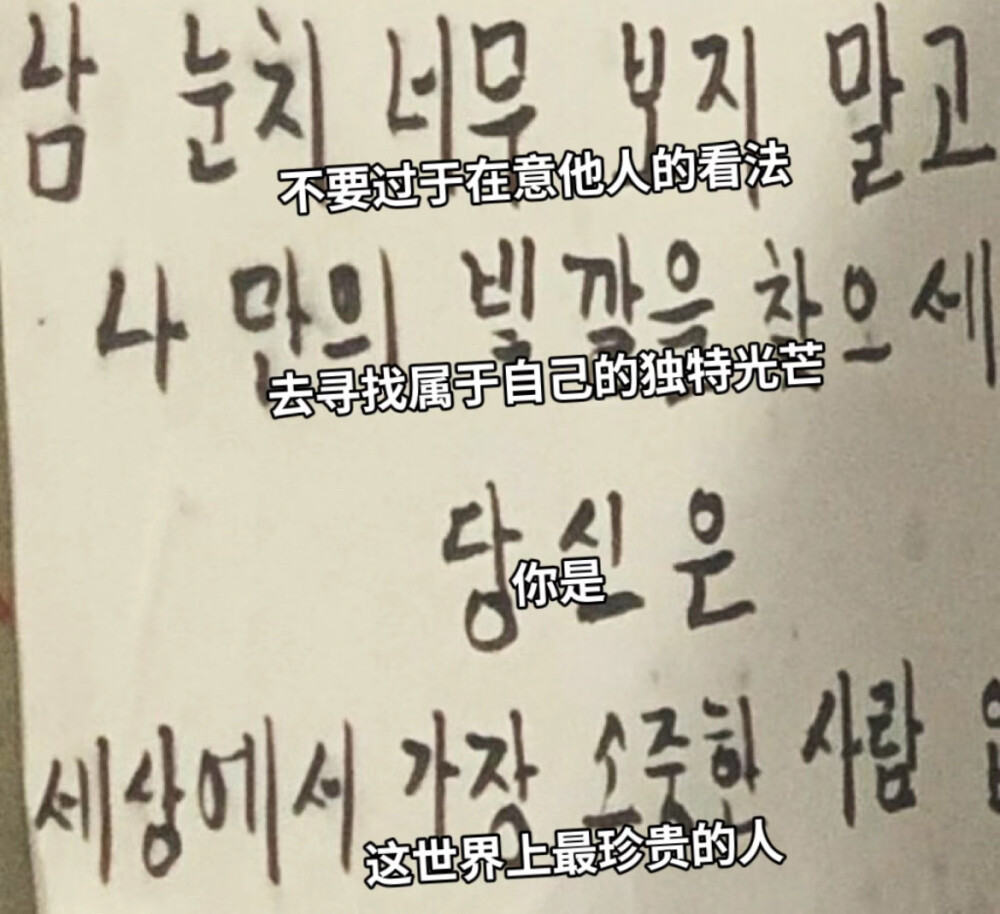 남 눈치 너무 보지 말고
不要过于在意他人的看法
나만의 빛깔을 찾으세
去寻找属于自己的独特光芒
당신은
你是
세상에서 가장 소중한 사람
这世界上最珍贵的人